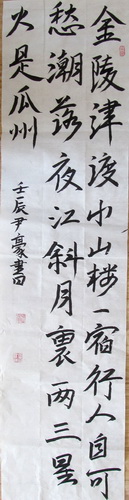 金陵津渡小山楼一宿行人自可
愁潮落夜江斜月裏两三星
火是瓜州
壬辰尹豪書田